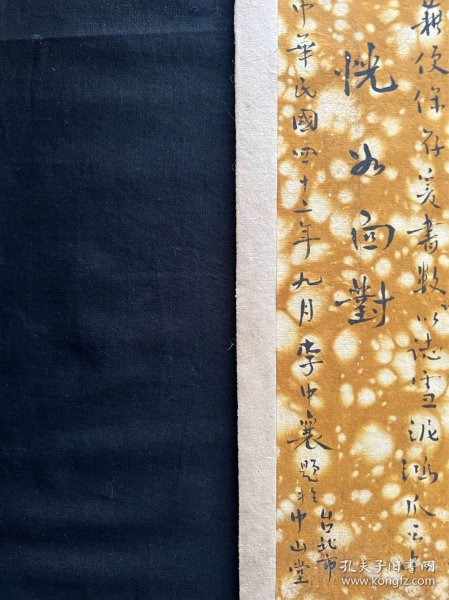 藉便保存爰書數以誌雪泥鴻爪云
恍如面對
中華民國四十二年九月李中襄題於台北市中山堂
孔夫子旧书网
www.kongfz.com